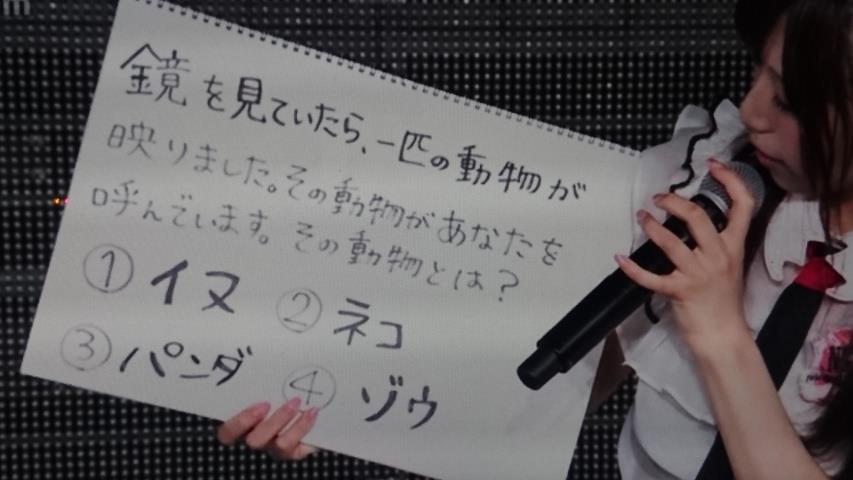 鏡を見ていたら、一匹の動物が
映りました。その動物があなたを
呼んでいます。その動物とは?
① イヌ ② ネコ
③ パンダ ④ ゾウ